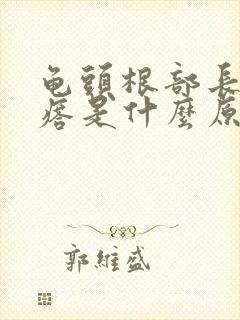 龟頭根部長
痞是什麽原
郭維盛